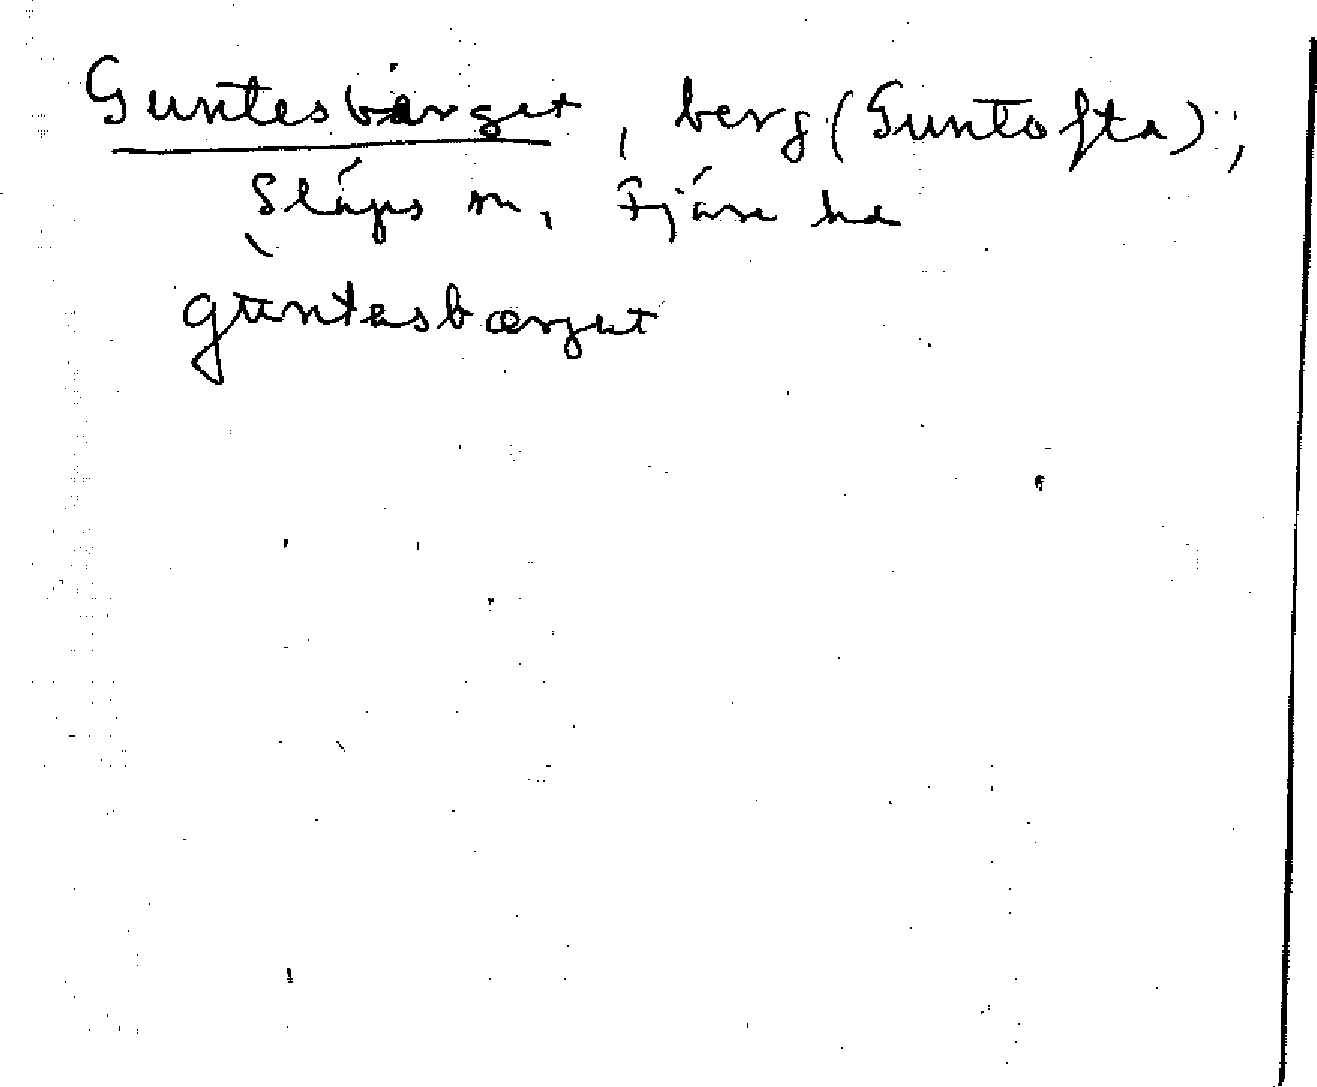 Guntesbärget, berg (Guntofta);
Släps sn, Fjäre hd
guntesbærget